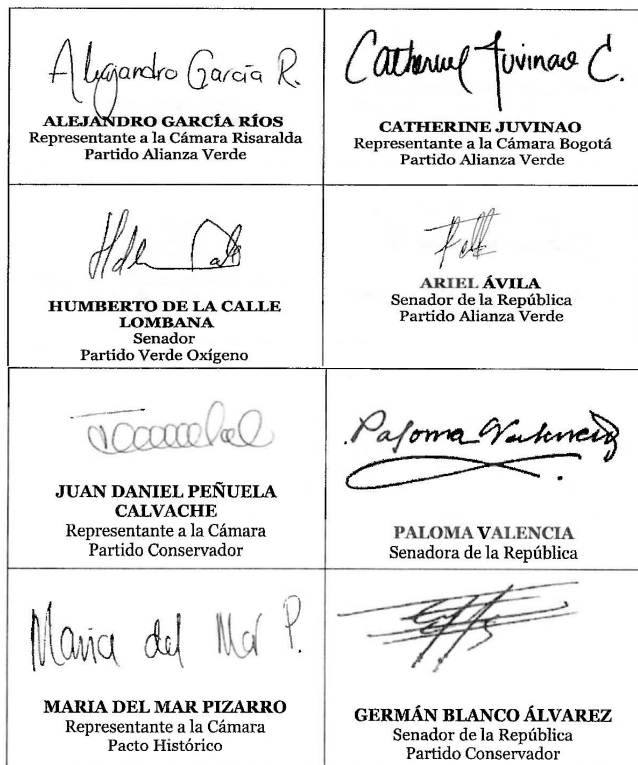 Alejandro García R.
ALEJANDRO GARCÍA RÍOS
Representante a la Cámara Risaralda
Partido Alianza Verde
Catherine Juvinao C.
CATHERINE JUVINAO
Representante a la Cámara Bogotá
Partido Alianza Verde
HUMBERTO DE LA CALLE
LOMBANA
Senador
Partido Verde Oxígeno
ARIEL ÁVILA
Senador de la República
Partido Alianza Verde
JUAN DANIEL PEÑUELA
CALVACHE
Representante a la Cámara
Partido Conservador
Paloma Valencia
PALOMA VALENCIA
Senadora de la República
Maria del Mar P.
MARIA DEL MAR PIZARRO
Representante a la Cámara
Pacto Histórico
GERMÁN BLANCO ÁLVAREZ
Senador de la República
Partido Conservador